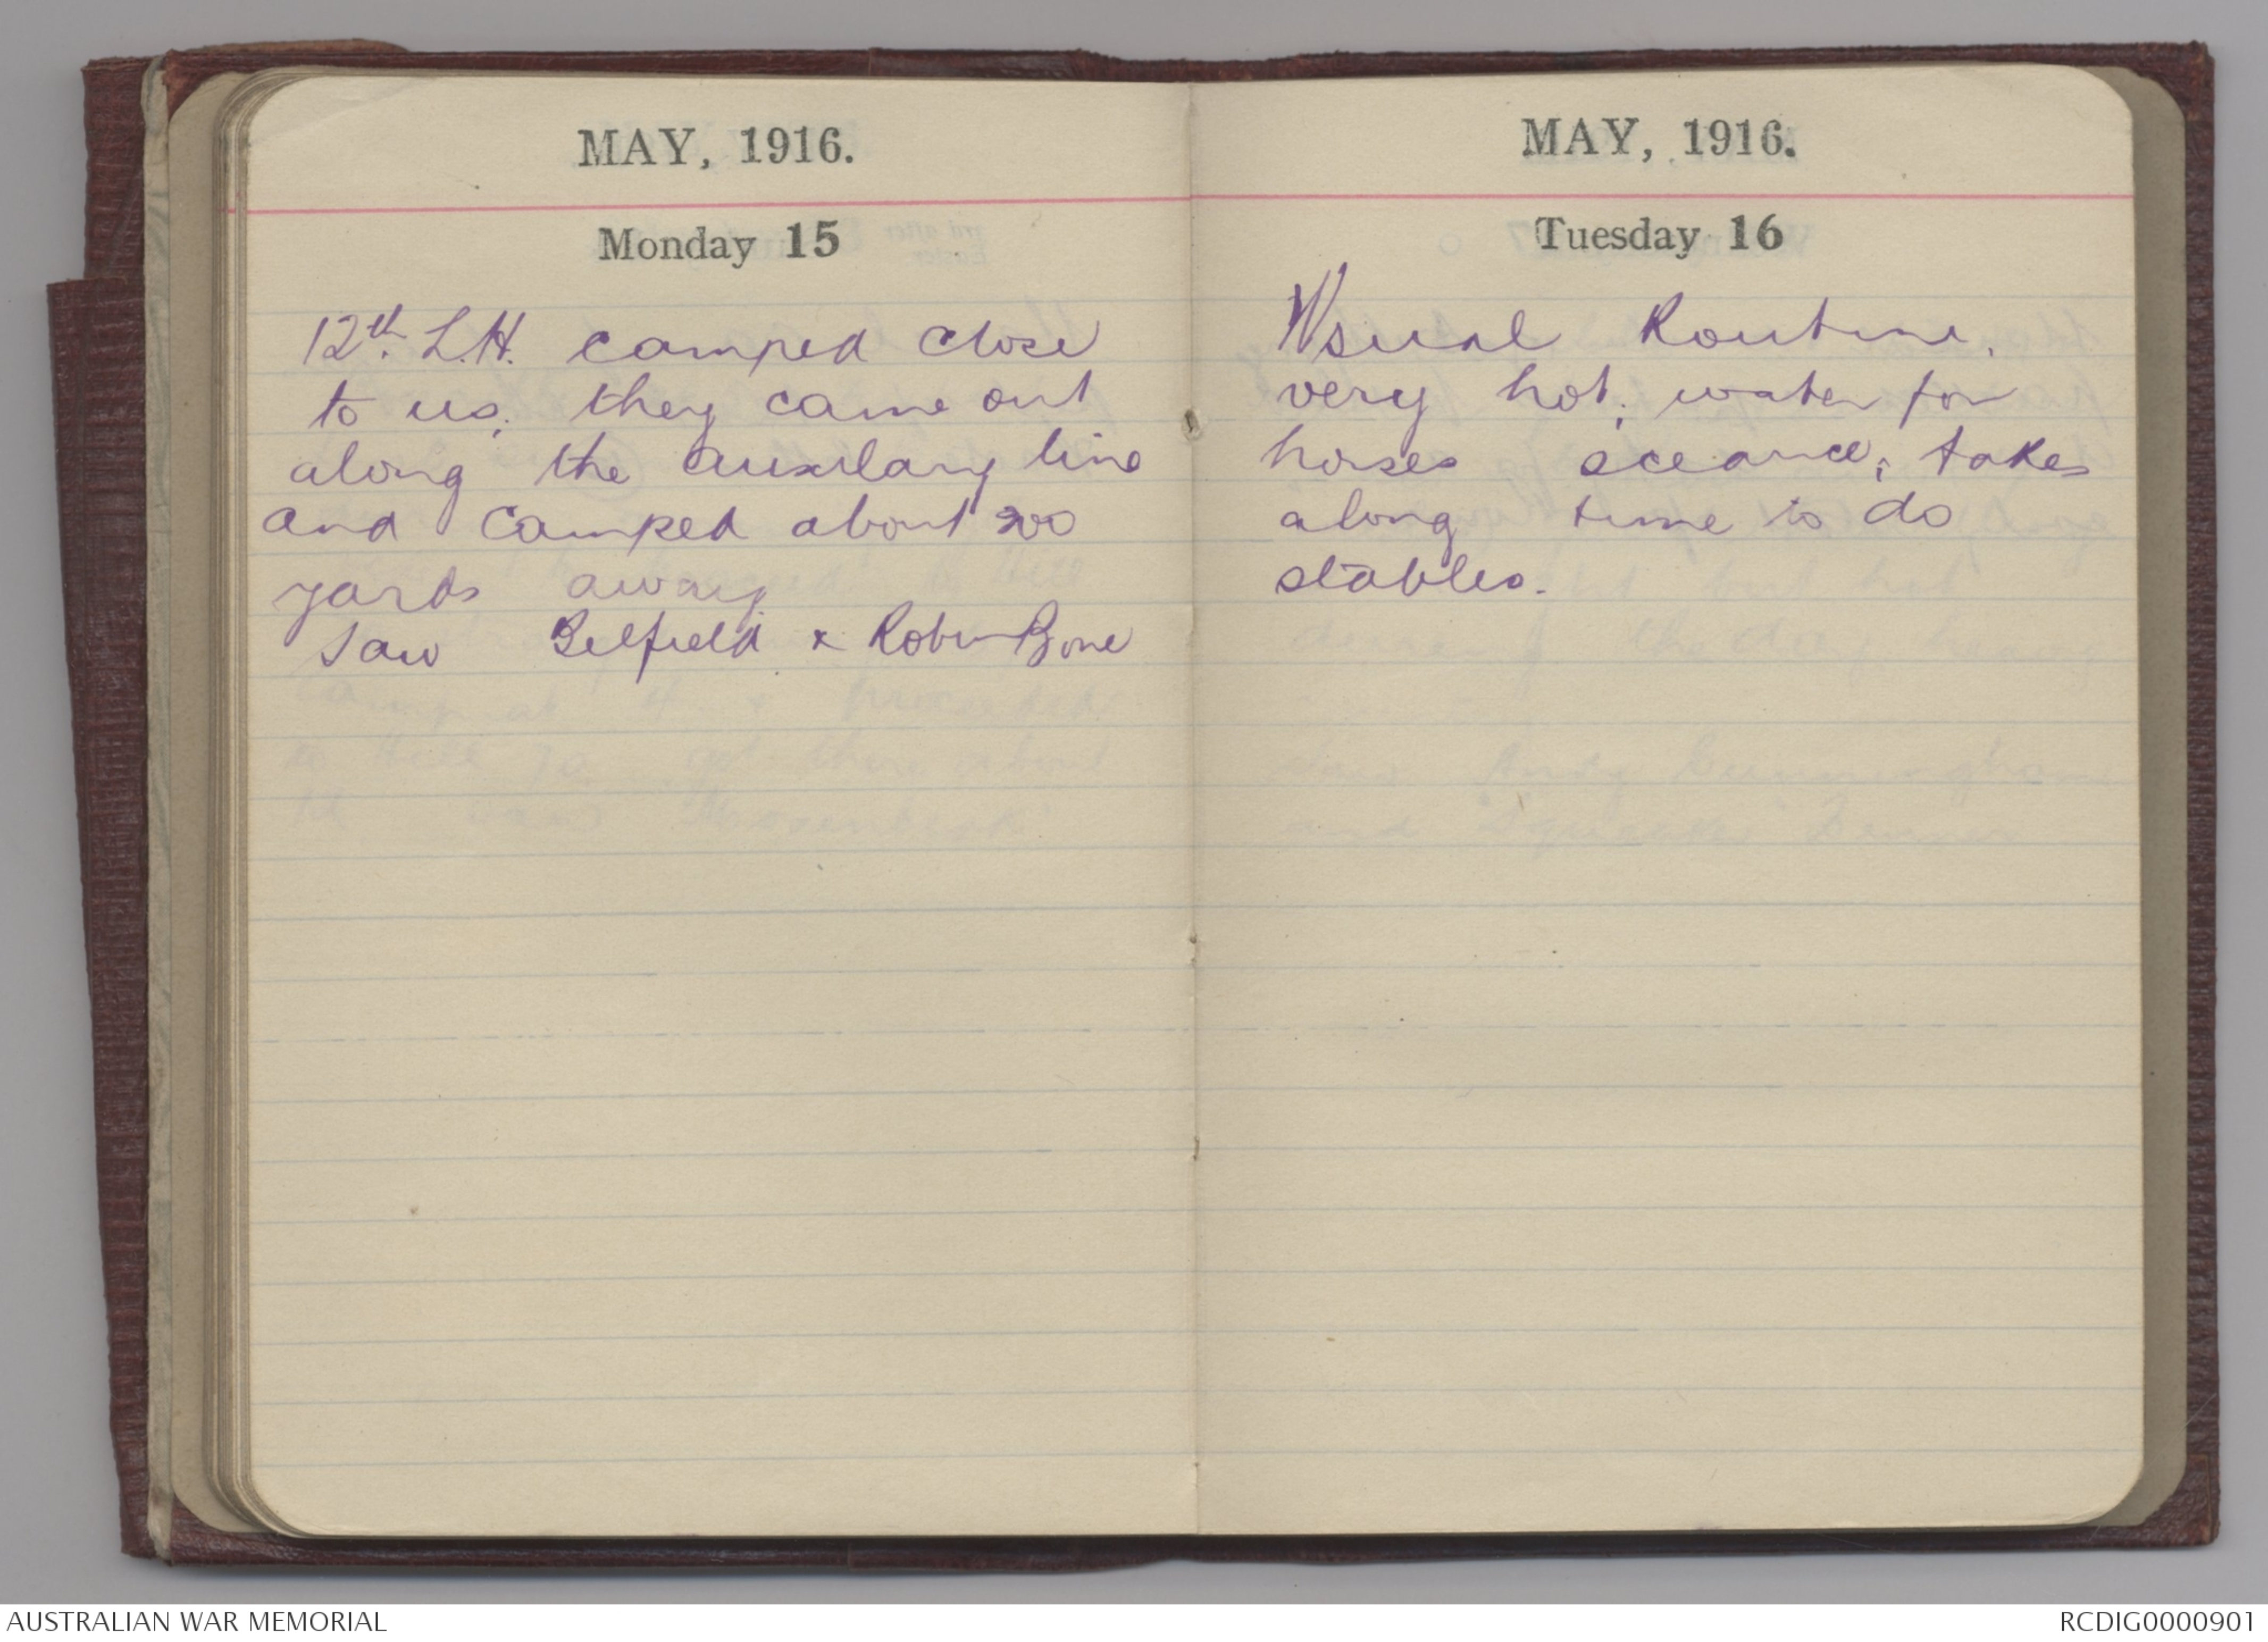 MAY, 1916.
Monday 15
12th. L.H. camped close
to us; they came out
along the auxilary line
and camped about 200
yards away.
Saw Belfield & Robin Bone
MAY, 1916.
Tuesday 16
Usual Routine.
very hot; water for
horses sceance; takes
along time to do
stables.
AUSTRALIAN WAR MEMORIAL
RCDIG0000901